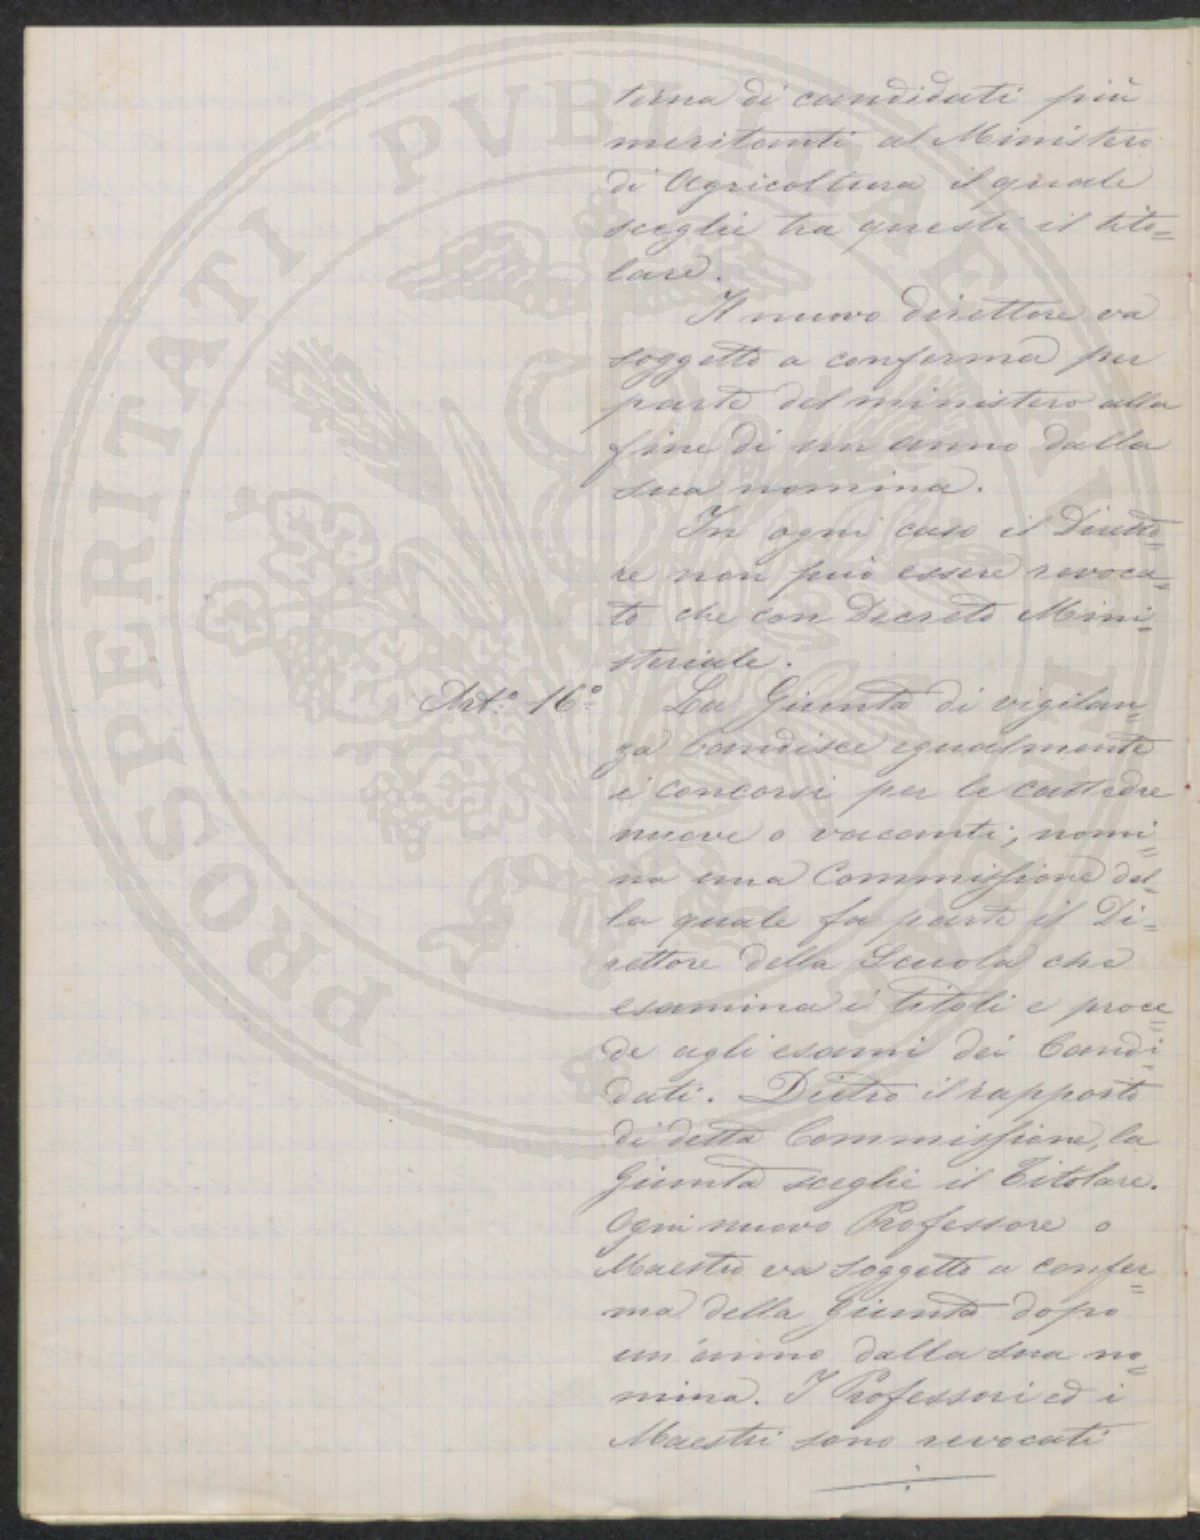 PROSPERITATI PVBLICAE AVGENDAE
terna di candidati più
meritanti al Ministero
di Agricoltura il quale
sceglie tra questi il tito=
lare.
Il nuovo direttore va
soggetto a conferma per
parte del ministero alla
fine di un anno dalla
sua nomina.
In ogni caso il Diretto=
re non può essere revoca=
to che con Decreto Mini=
steriale.
Art.º 16º La Giunta di vigilan=
za bandisce egualmente
i concorsi per le cattedre
nuove o vacanti; nomi=
na una Commissione del=
la quale fa parte il Di=
rettore della Scuola che
esamina i titoli e proce=
de agli esami dei Candi=
dati. Dietro il rapporto
di detta Commissione, la
Giunta sceglie il Titolare.
Ogni nuovo Professore o
Maestro va soggetto a confer=
ma della Giunta dopo
un'anno dalla sua no=
mina. I Professori ed i
Maestri sono revocati